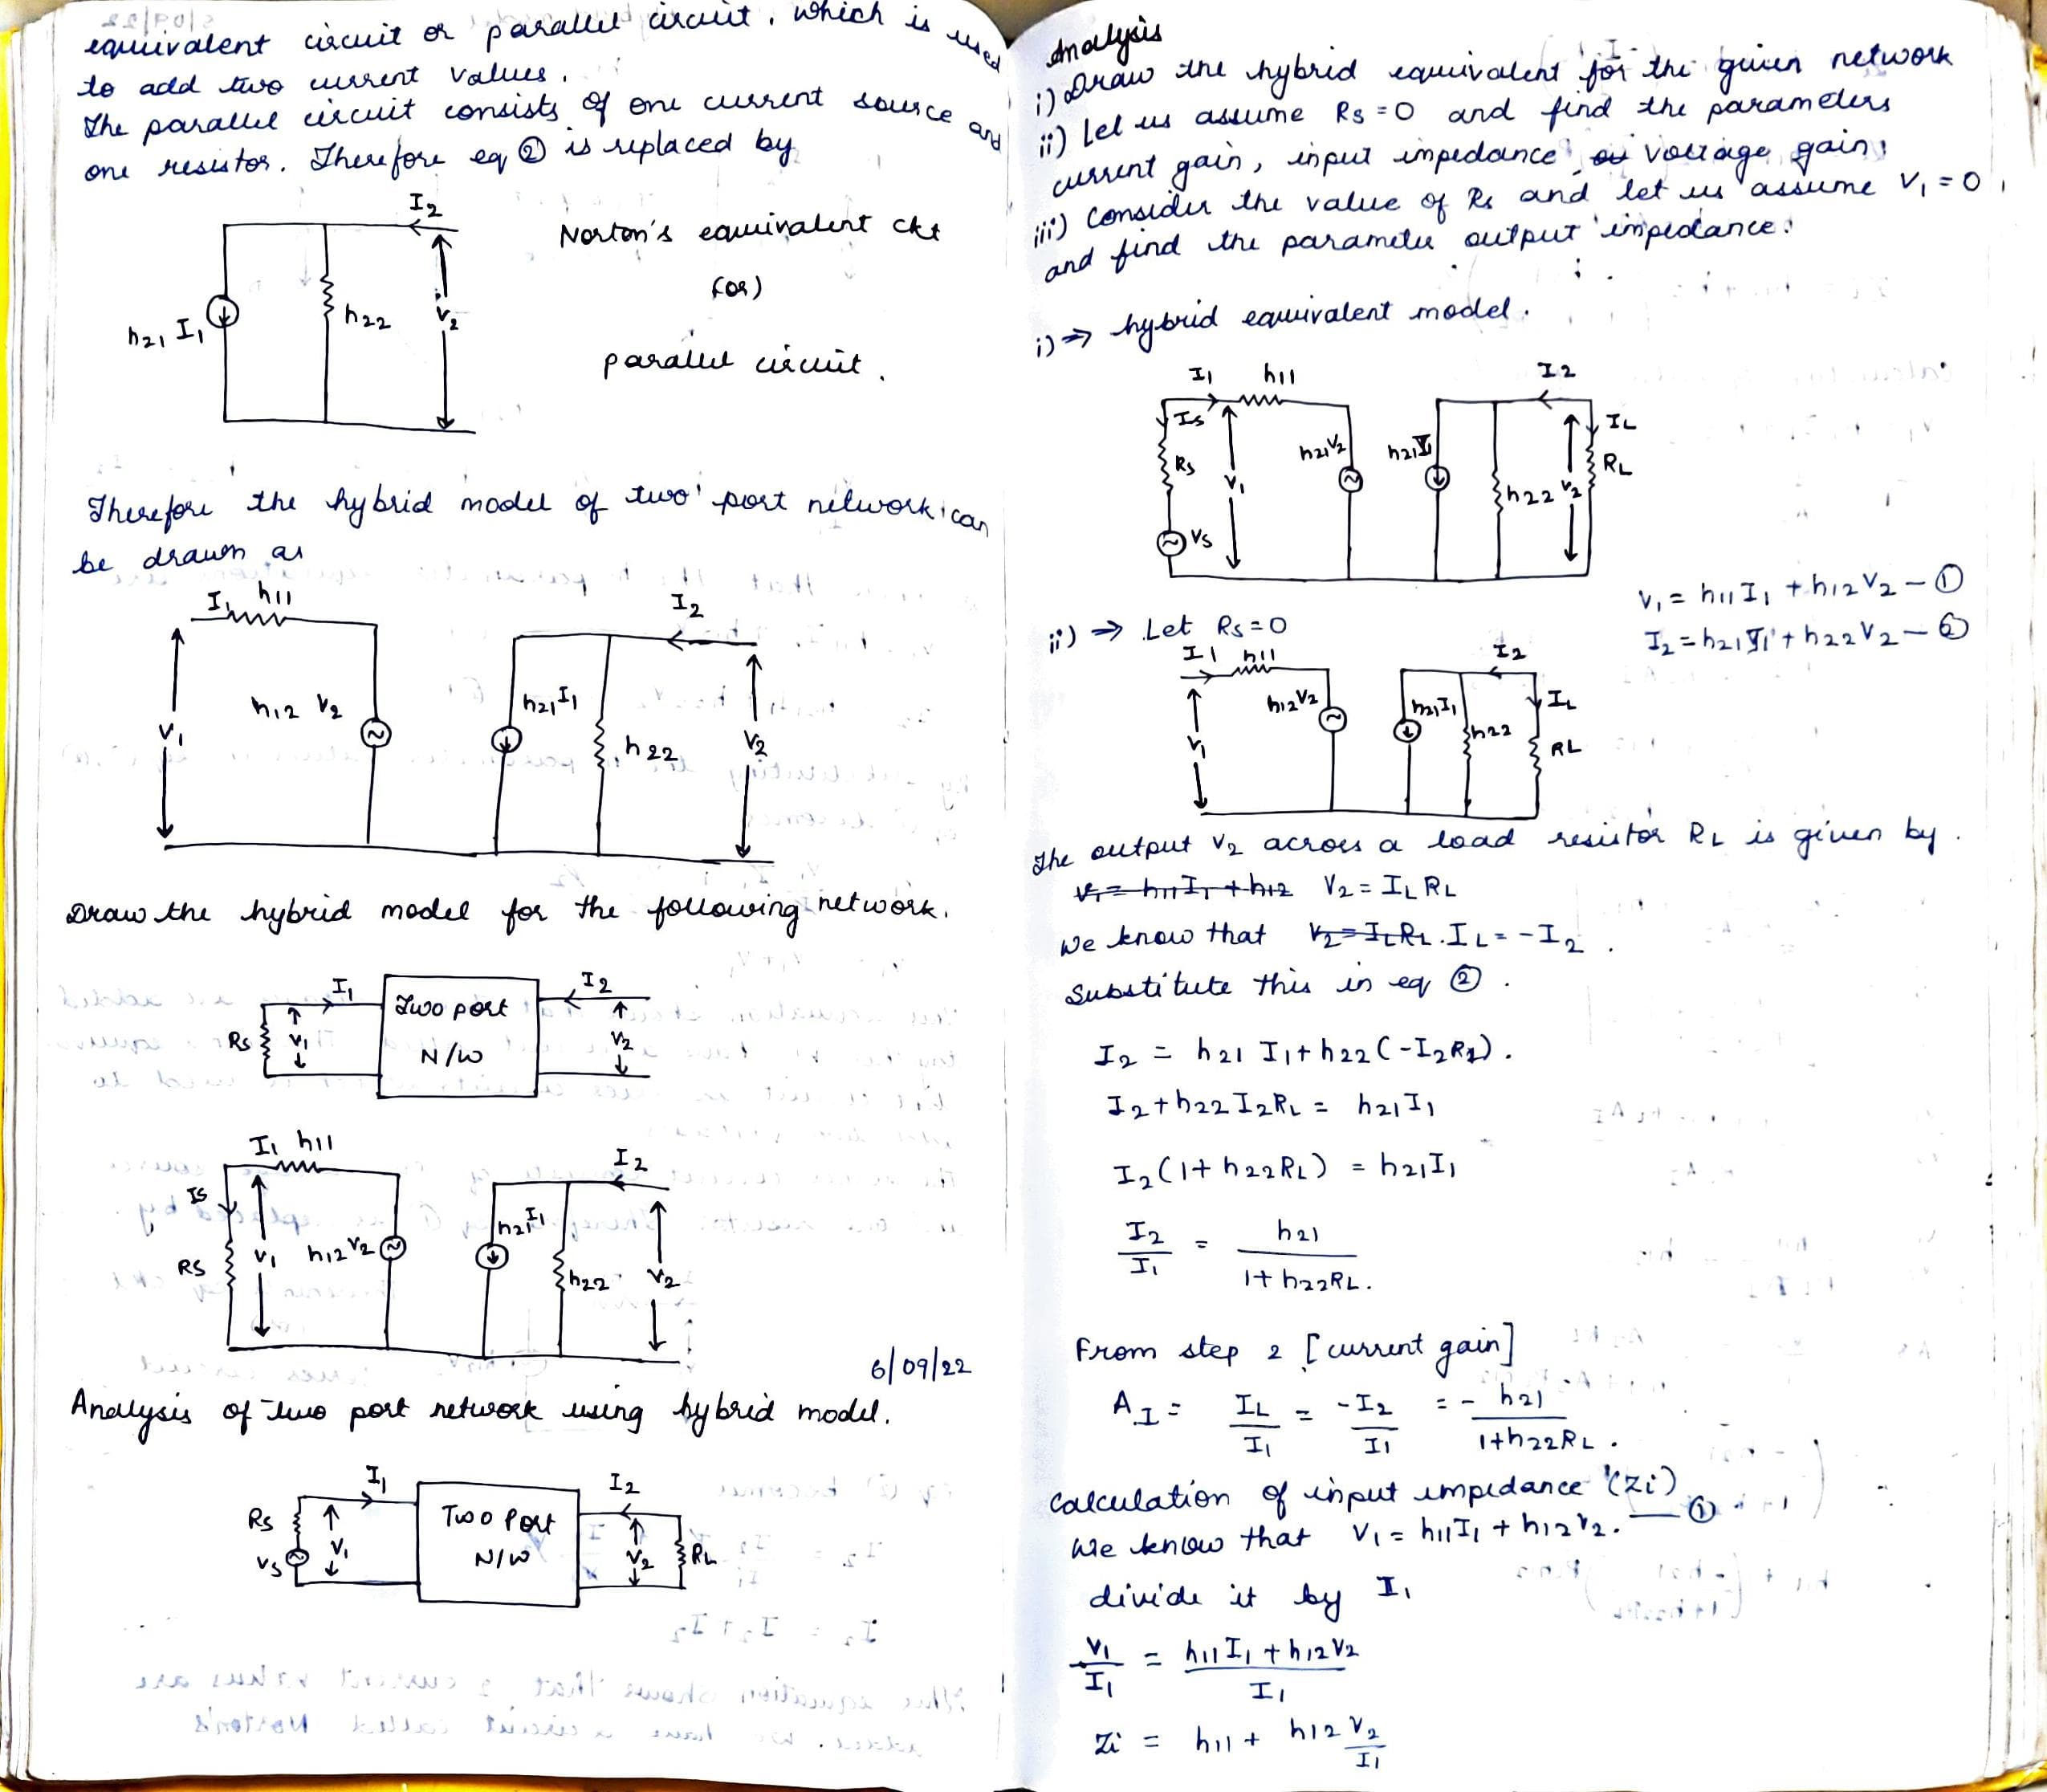 equivalent circuit or parallel circuit. which is used
to add two current values.
The parallel circuit consists of one current source and
one resistor. Therefore eq ② is replaced by
I2
Norton's equivalent ckt
(or)
parallel circuit.
h21 I1
h22
V2
Therefore the hybrid model of two port network can
be drawn as
I1 h11
I2
V1
h12 V2
h21 I1
h22
V2
Draw the hybrid model for the following network.
I1
Two port
N/W
I2
Rs
V1
V2
I1 h11
I2
Is
Rs
V1
h12 V2
h21 I1
h22
V2
6/09/22
Analysis of Two port network using hybrid model.
I1
I2
Rs
Vs
V1
Two Port
N/W
V2
RL
Analysis
i) Draw the hybrid equivalent for the given network
ii) Let us assume Rs = 0 and find the parameters
current gain, input impedance, voltage gain.
iii) Consider the value of Rs and let us assume V1 = 0
and find the parameter output impedance.
i) ⇒ hybrid equivalent model.
I1 h11
I2
Is
Rs
Vs
V1
h21V2
h21I1
h22
V2
IL
RL
V1 = h11 I1 + h12 V2 — ①
I2 = h21 I1 + h22 V2 — ②
ii) ⇒ Let Rs = 0
I1 h11
I2
V1
h12V2
h21I1
h22
IL
RL
The output V2 across a load resistor RL is given by.
V1 = h11 I1 + h12 V2 = IL RL
We know that V2 = IL RL. IL = -I2.
Substitute this in eq ②.
I2 = h21 I1 + h22 (-I2RL).
I2 + h22 I2RL = h21 I1
I2 (1 + h22RL) = h21 I1
I2 / I1 = h21 / 1 + h22RL.
From step 2 [current gain]
AI = IL / I1 = -I2 / I1 = - h21 / 1+h22RL.
Calculation of input impedance (Zi)
We know that V1 = h11 I1 + h12 V2. — ①
divide it by I1
V1 / I1 = h11 I1 + h12 V2 / I1
Zi = h11 + h12 V2 / I1